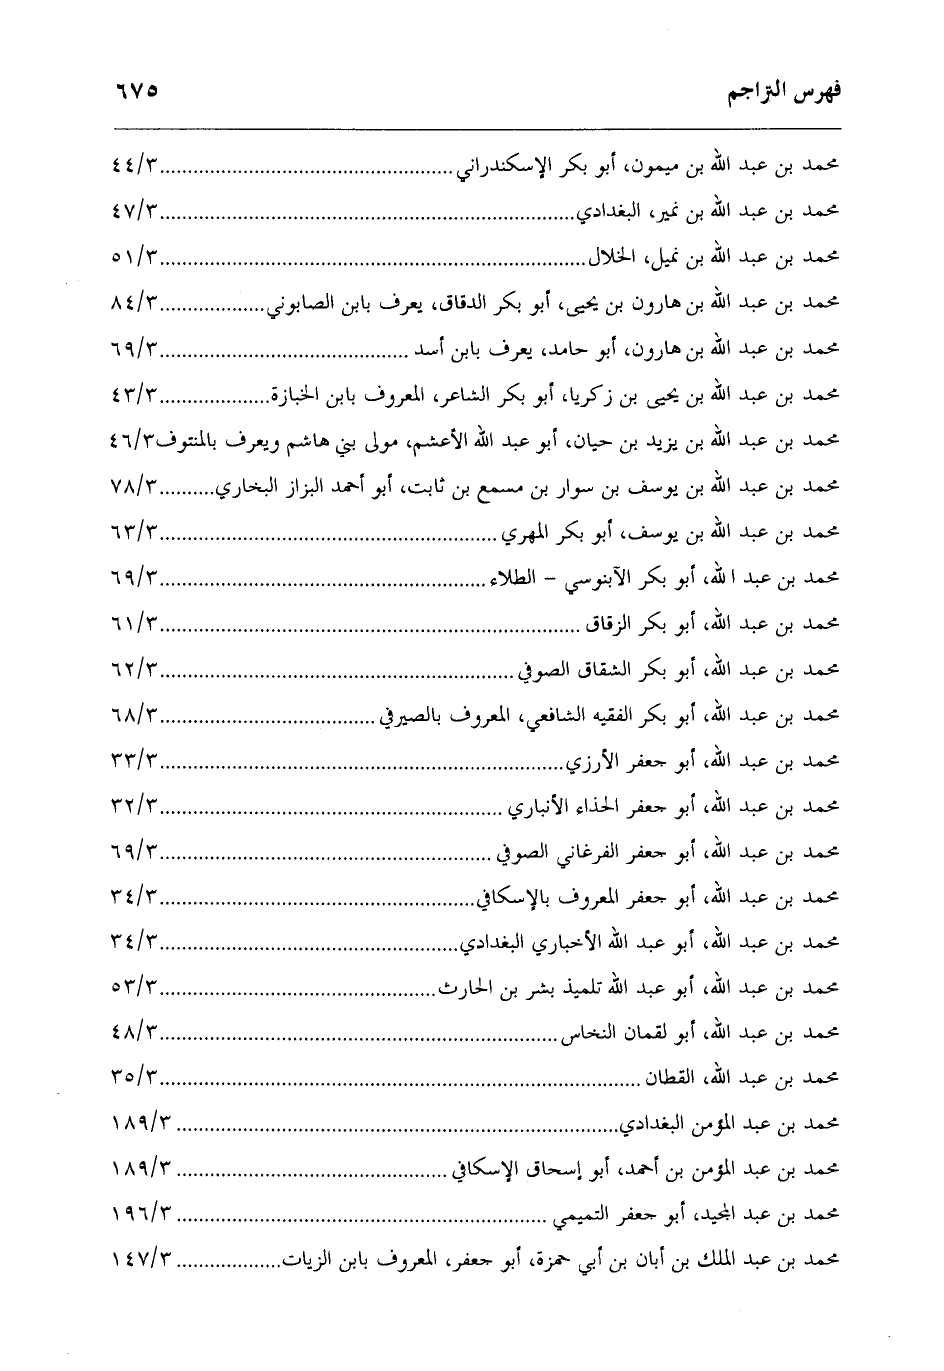 فهرس التراجم ٦٧٥
محمد بن عبد الله بن ميمون، أبو بكر الإسكندراني ٤٤/٣
محمد بن عبد الله بن نمير، البغدادي ٤٧/٣
محمد بن عبد الله بن نميل، الخلال ٥١/٣
محمد بن عبد الله بن هارون بن يحيى، أبو بكر الدقاق، يعرف بابن الصابوني ٨٤/٣
محمد بن عبد الله بن هارون، أبو حامد، يعرف بابن أسد ٦٩/٣
محمد بن عبد الله بن يحيى بن زكريا، أبو بكر الشاعر، المعروف بابن الخبازة ٤٣/٣
محمد بن عبد الله بن يزيد بن حيان، أبو عبد الله الأعشم، مولى بني هاشم ويعرف بالمنتوف ٤٦/٣
محمد بن عبد الله بن يوسف بن سوار بن مسمع بن ثابت، أبو أحمد البزاز البخاري ٧٨/٣
محمد بن عبد الله بن يوسف، أبو بكر المهري ٦٣/٣
محمد بن عبد الله، أبو بكر الآبنوسي – الطلاء ٦٩/٣
محمد بن عبد الله، أبو بكر الزقاق ٦١/٣
محمد بن عبد الله، أبو بكر الشقاق الصوفي ٦٢/٣
محمد بن عبد الله، أبو بكر الفقيه الشافعي، المعروف بالصيرفي ٦٨/٣
محمد بن عبد الله، أبو جعفر الأرزي ٣٣/٣
محمد بن عبد الله، أبو جعفر الحذاء الأنباري ٣٢/٣
محمد بن عبد الله، أبو جعفر الفرغاني الصوفي ٦٩/٣
محمد بن عبد الله، أبو جعفر المعروف بالإسكافي ٣٤/٣
محمد بن عبد الله، أبو عبد الله الأخباري البغدادي ٣٤/٣
محمد بن عبد الله، أبو عبد الله تلميذ بشر بن الحارث ٥٣/٣
محمد بن عبد الله، أبو لقمان النخاس ٤٨/٣
محمد بن عبد الله، القطان ٣٥/٣
محمد بن عبد المؤمن البغدادي ١٨٩/٣
محمد بن عبد المؤمن بن أحمد، أبو إسحاق الإسكافي ١٨٩/٣
محمد بن عبد المجيد، أبو جعفر التميمي ١٩٦/٣
محمد بن عبد الملك بن أبان بن أبي حمزة، أبو جعفر، المعروف بابن الزيات ١٤٧/٣